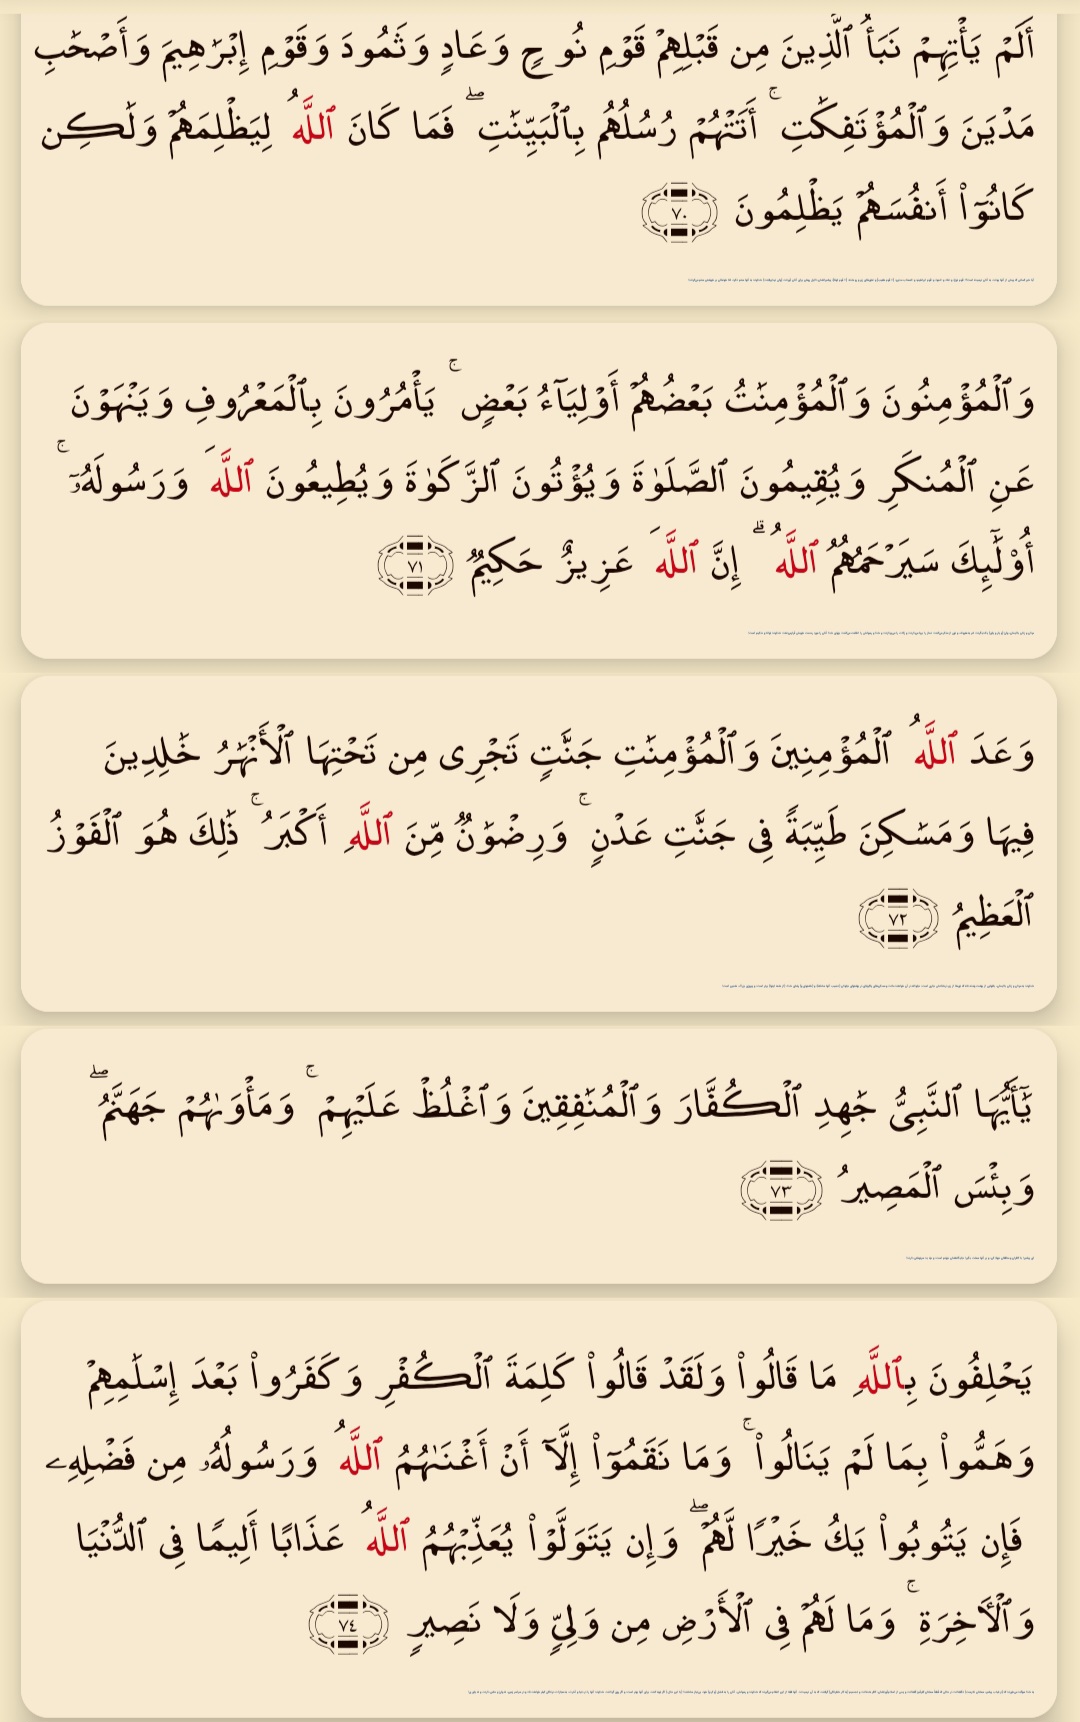 أَلَمْ يَأْتِهِمْ نَبَأُ ٱلَّذِينَ مِن قَبْلِهِمْ قَوْمِ نُوحٍ وَعَادٍ وَثَمُودَ وَقَوْمِ إِبْرَٰهِيمَ وَأَصْحَٰبِ
مَدْيَنَ وَٱلْمُؤْتَفِكَٰتِ ۚ أَتَتْهُمْ رُسُلُهُم بِٱلْبَيِّنَٰتِ ۖ فَمَا كَانَ ٱللَّهُ لِيَظْلِمَهُمْ وَلَٰكِن
كَانُوٓا۟ أَنفُسَهُمْ يَظْلِمُونَ ٧٠
وَٱلْمُؤْمِنُونَ وَٱلْمُؤْمِنَٰتُ بَعْضُهُمْ أَوْلِيَآءُ بَعْضٍ ۚ يَأْمُرُونَ بِٱلْمَعْرُوفِ وَيَنْهَوْنَ
عَنِ ٱلْمُنكَرِ وَيُقِيمُونَ ٱلصَّلَوٰةَ وَيُؤْتُونَ ٱلزَّكَوٰةَ وَيُطِيعُونَ ٱللَّهَ وَرَسُولَهُۥٓ ۚ
أُو۟لَٰٓئِكَ سَيَرْحَمُهُمُ ٱللَّهُ ۗ إِنَّ ٱللَّهَ عَزِيزٌ حَكِيمٌ ٧١
وَعَدَ ٱللَّهُ ٱلْمُؤْمِنِينَ وَٱلْمُؤْمِنَٰتِ جَنَّٰتٍ تَجْرِى مِن تَحْتِهَا ٱلْأَنْهَٰرُ خَٰلِدِينَ
فِيهَا وَمَسَٰكِنَ طَيِّبَةً فِى جَنَّٰتِ عَدْنٍ ۚ وَرِضْوَٰنٌ مِّنَ ٱللَّهِ أَكْبَرُ ۚ ذَٰلِكَ هُوَ ٱلْفَوْزُ
ٱلْعَظِيمُ ٧٢
يَٰٓأَيُّهَا ٱلنَّبِىُّ جَٰهِدِ ٱلْكُفَّارَ وَٱلْمُنَٰفِقِينَ وَٱغْلُظْ عَلَيْهِمْ ۚ وَمَأْوَىٰهُمْ جَهَنَّمُ ۖ
وَبِئْسَ ٱلْمَصِيرُ ٧٣
يَحْلِفُونَ بِٱللَّهِ مَا قَالُوا۟ وَلَقَدْ قَالُوا۟ كَلِمَةَ ٱلْكُفْرِ وَكَفَرُوا۟ بَعْدَ إِسْلَٰمِهِمْ
وَهَمُّوا۟ بِمَا لَمْ يَنَالُوا۟ ۚ وَمَا نَقَمُوٓا۟ إِلَّآ أَنْ أَغْنَىٰهُمُ ٱللَّهُ وَرَسُولُهُۥ مِن فَضْلِهِۦ
فَإِن يَتُوبُوا۟ يَكُ خَيْرًا لَّهُمْ ۖ وَإِن يَتَوَلَّوْا۟ يُعَذِّبْهُمُ ٱللَّهُ عَذَابًا أَلِيمًا فِى ٱلدُّنْيَا
وَٱلْـَٔاخِرَةِ ۚ وَمَا لَهُمْ فِى ٱلْأَرْضِ مِن وَلِىٍّ وَلَا نَصِيرٍ ٧٤